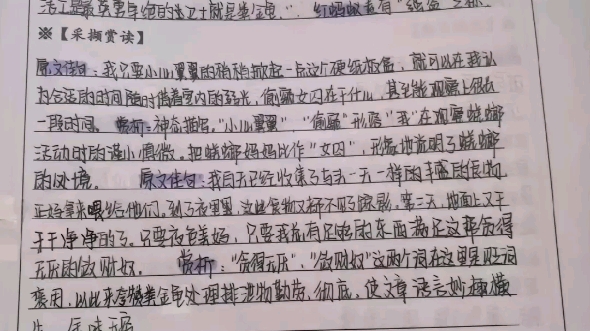 活工最最英勇卓绝的卫士就是粪金龟."，红蚂蚁素有
※【采撷赏读】
原文佳句：我只要小心翼翼的稍稍掀起一点这个硬纸板盒，就可以在我认
为合适的时间随时借着室内的弱光，偷窥女囚在干什么，甚至能观察上很长
一段时间。 赏析：神态描写。"小心翼翼"、"偷窥"形容"我"在观察蜣螂
活动时的谨小慎微。把蜣螂妈妈比作"女囚"，形象地说明了蜣螂
的处境。 原文佳句：我白天已经收集了与头一天一样的丰盛的食物，
正好拿来喂给他们。到了夜里，这些食物又都不见了踪影，第二天，地面上又干
干净净的了。只要夜色美好，只要我总有足够的东西满足这群贪得
无厌的敛财奴。 赏析："贪得无厌"、"敛财奴"这两个词在这里是贬词
褒用，以此来夸赞粪金龟处理排泄物勤劳、彻底，使文章语言妙趣横
生，回味无穷